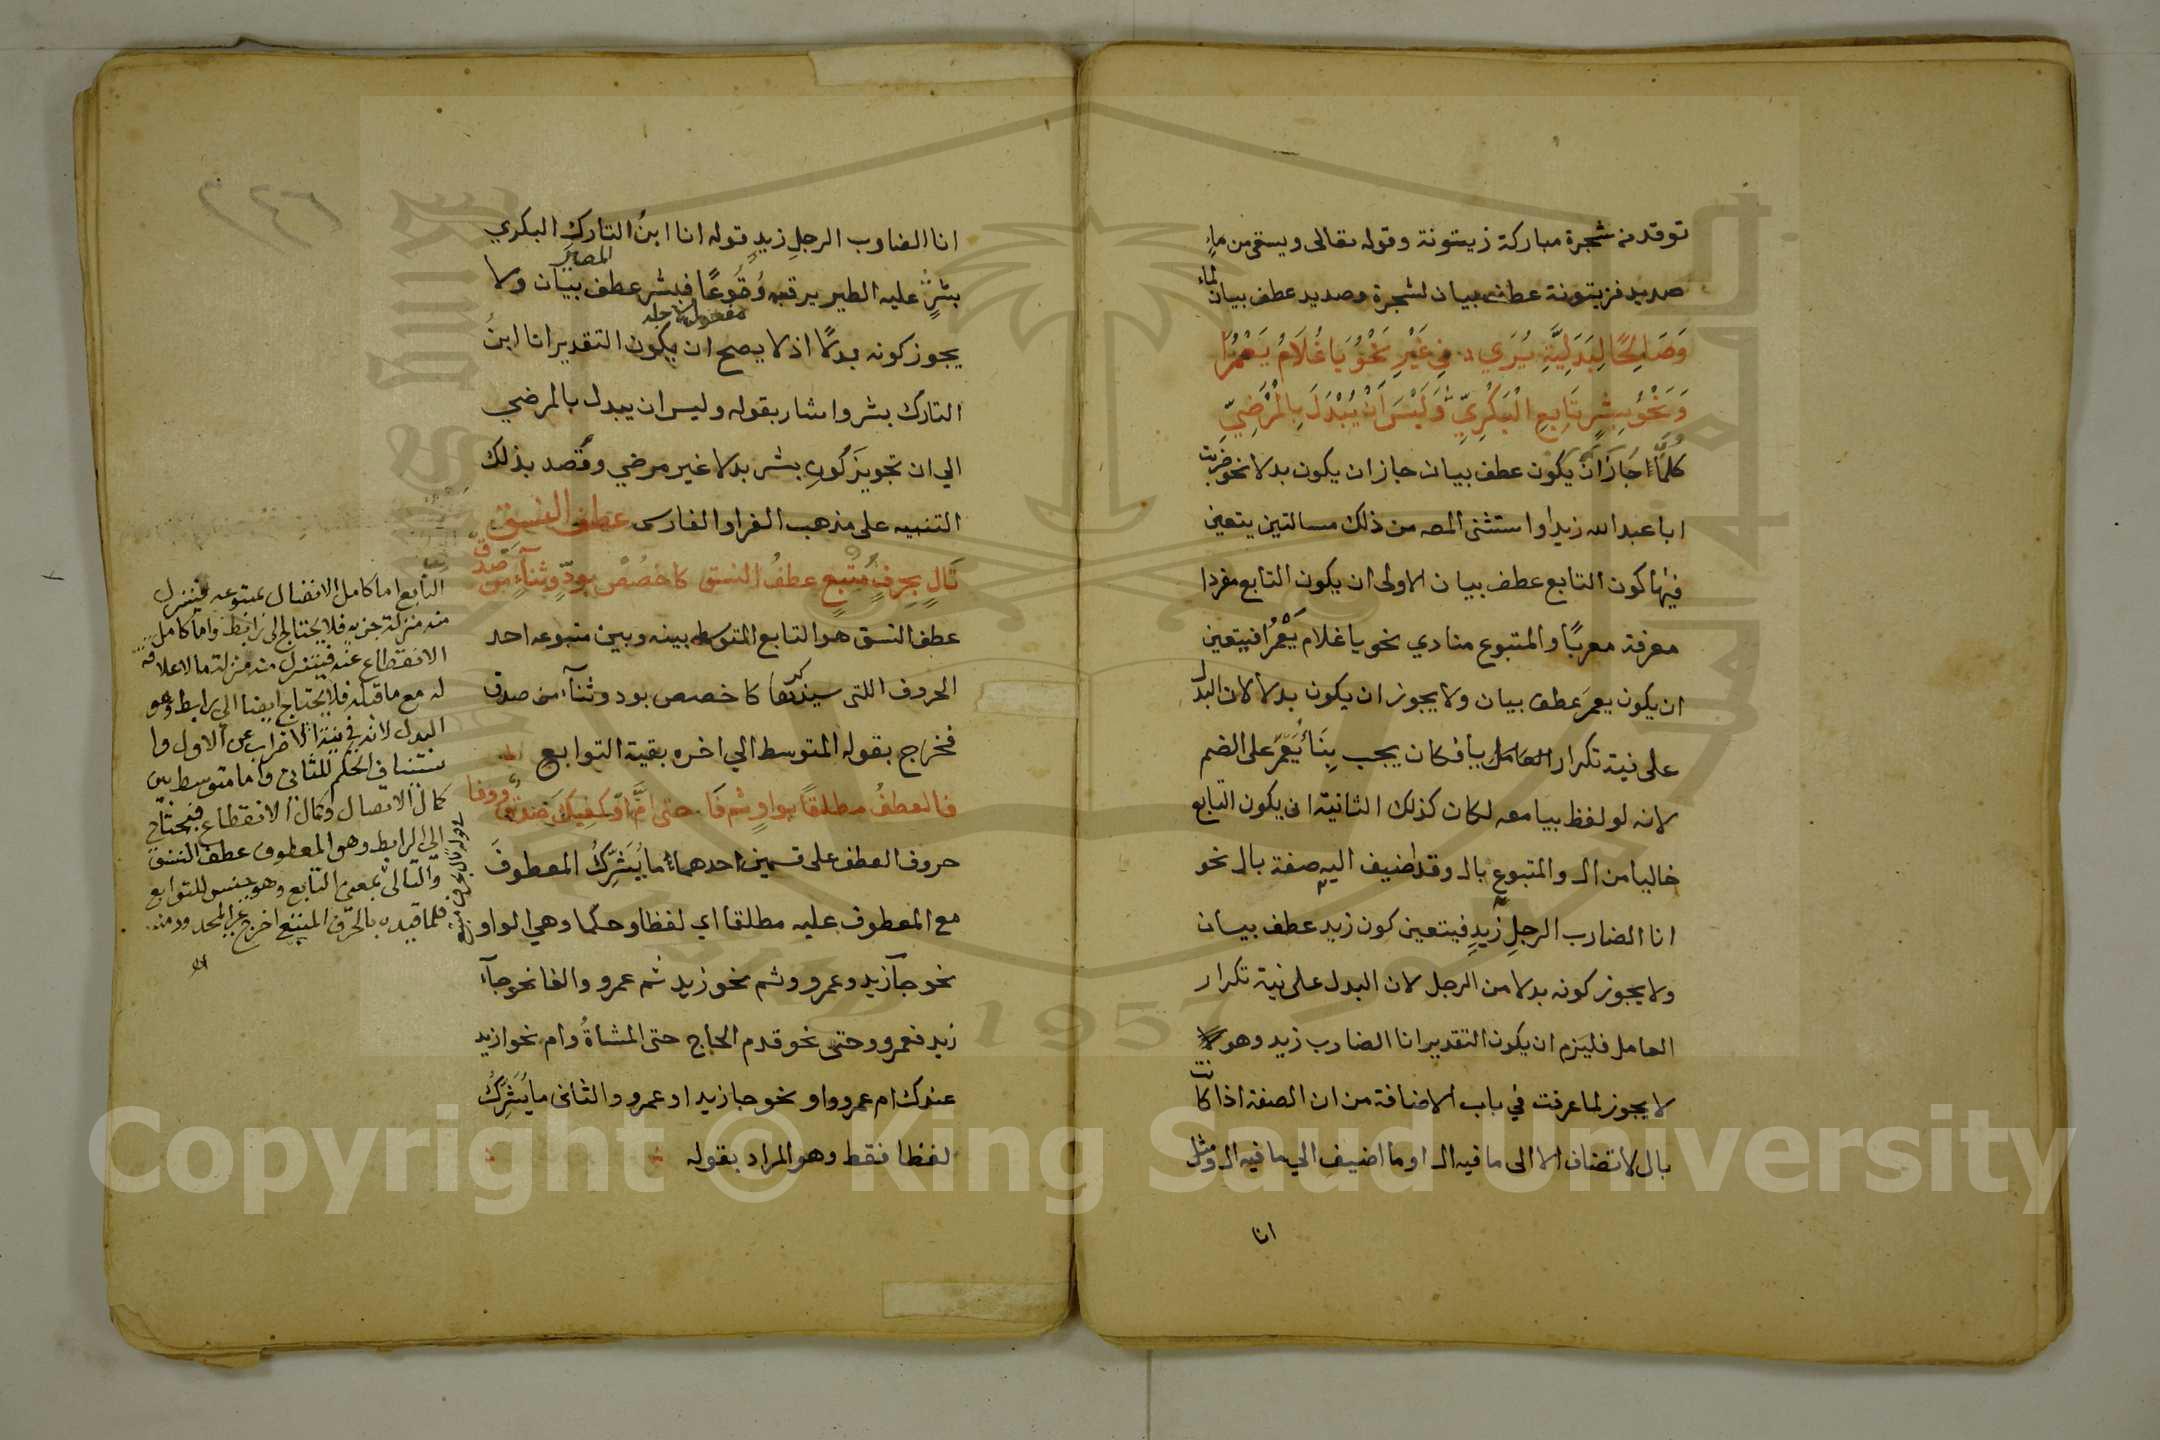 توقد من شجرة مباركة زيتونة وقوله تعالى ويسقى من ماء
صديد فزيتونة عطف بيان لشجرة وصديد عطف بيان لماء
وَصَالِحًا لِبَدَلِيَّةٍ يُرَي في غَيْرِ نَحْوُ يَا غُلَامُ يَعْمُرَا
وَنَحْوُ بِشْرٍ تَابِعِ الْبَكْرِيِّ وَلَيْسَ اَنْ يُبْدَلَ بِالْمَرْضِيِّ
كلما جاز ان يكون عطف بيان جاز ان يكون بدلا نحو ضربت
ابا عبد الله زيدا واستثنى المصـ من ذلك مسالتين يتعين
فيها كون التابع عطف بيان الاولى ان يكون التابع مفردا
معرفة معربًا والمتبوع منادي نحو يا غلام يَعْمُرَا فيتعين
ان يكون يعمر عطف بيان ولا يجوز ان يكون بدلا لان البدل
على نية تكرار العامل يا فكان يجب بناء يعمر على الضم
لانه لو لفظ بيا معه لكان كذلك الثانية ان يكون التابع
خاليا من الـ والمتبوع بالـ وقد اضيف اليه صفة بالـ نحو
انا الضارب الرجلِ زيدٍ فيتعين كون زيد عطف بيان
ولا يجوز كونه بدلا من الرجل لان البدل على نية تكرار
العامل فليزم ان يكون التقدير انا الضارب زيد وهو
لا يجوز لما عرفت في باب الاضافة من ان الصفة اذا كانت
بال لا تضاف الا الى ما فيه الـ او ما اضيف الي ما فيه الـ ومثل
انا
٢٤٦
انا الضارب الرجلِ زيدٍ قوله انا ابنُ التارك البكري
بشرٍ عليه الطير يرقبه وُقُوعًا فبشر عطف بيان ولا
مفعول لاجله
يجوز كونه بدلًا اذ لا يصح ان يكون التقدير انا ابنُ
التارك بشر واشار بقوله وليس ان يبدل بالمرضي
الي ان تجويزَ كونِ بشر بدلا غير مرضي وقُصد بذلك
التنبيه على مذهب الفرا والفارسى عطف النسق
تَالٍ بِحرفٍ مُتبِعٍ عطفُ النسق كاخصُصْ بودٍّ وثناءٍ من صَدَقْ
عطف النسق هو التابع المتوسط بينه وبين متبوعه احد
الحروف اللتى سيذكرها كاخصص بود وثناء من صدق
فخرج بقوله المتوسط الي اخره بقية التوابع
فالعطفُ مطلقًا بواوٍ ثم فَا حتى امْ اوْ كفيك صدق ووفا
حروف العطف على قسمين احدهما ما يُشَرِّكُ المعطوفَ
مع المعطوف عليه مطلقا اي لفظا وحكما وهي الواو
نحو جآ زيد وعمرو وثم نحو زيد ثم عمرو والفا نحو جآء
زيد فعمرو وحتى نحو قدم الحاج حتى المشاةُ وام نحو ازيد
عندك ام عمرو واو نحو جا زيد او عمرو والثانى ما يُشَرِّكُ
لفظا فقط وهو المراد بقوله
التابع اما كامل الاتصال بمتبوعه فينزل
منه منزلة جزئه فلا يحتاج الى رابط واما كامل
الانقطاع عنه فينزل منه منزلة ما لا علاقة
له مع ما قبله فلا يحتاج ايضا الي رابط وهو
البدل لانه في نية الاضراب عن الاول وا
ستئناف الحكم للثانى واما متوسط بين
كمال الاتصال وكمال الانقطاع فيحتاج
الى الرابط وهو المعطوف عطف النسق
والتالى بمعنى التابع وهو جنس للتوابع
فلما قيده بالحرف المتبع اخرج غير المحدود منه
اهـ
Copyright © King Saud University
1957